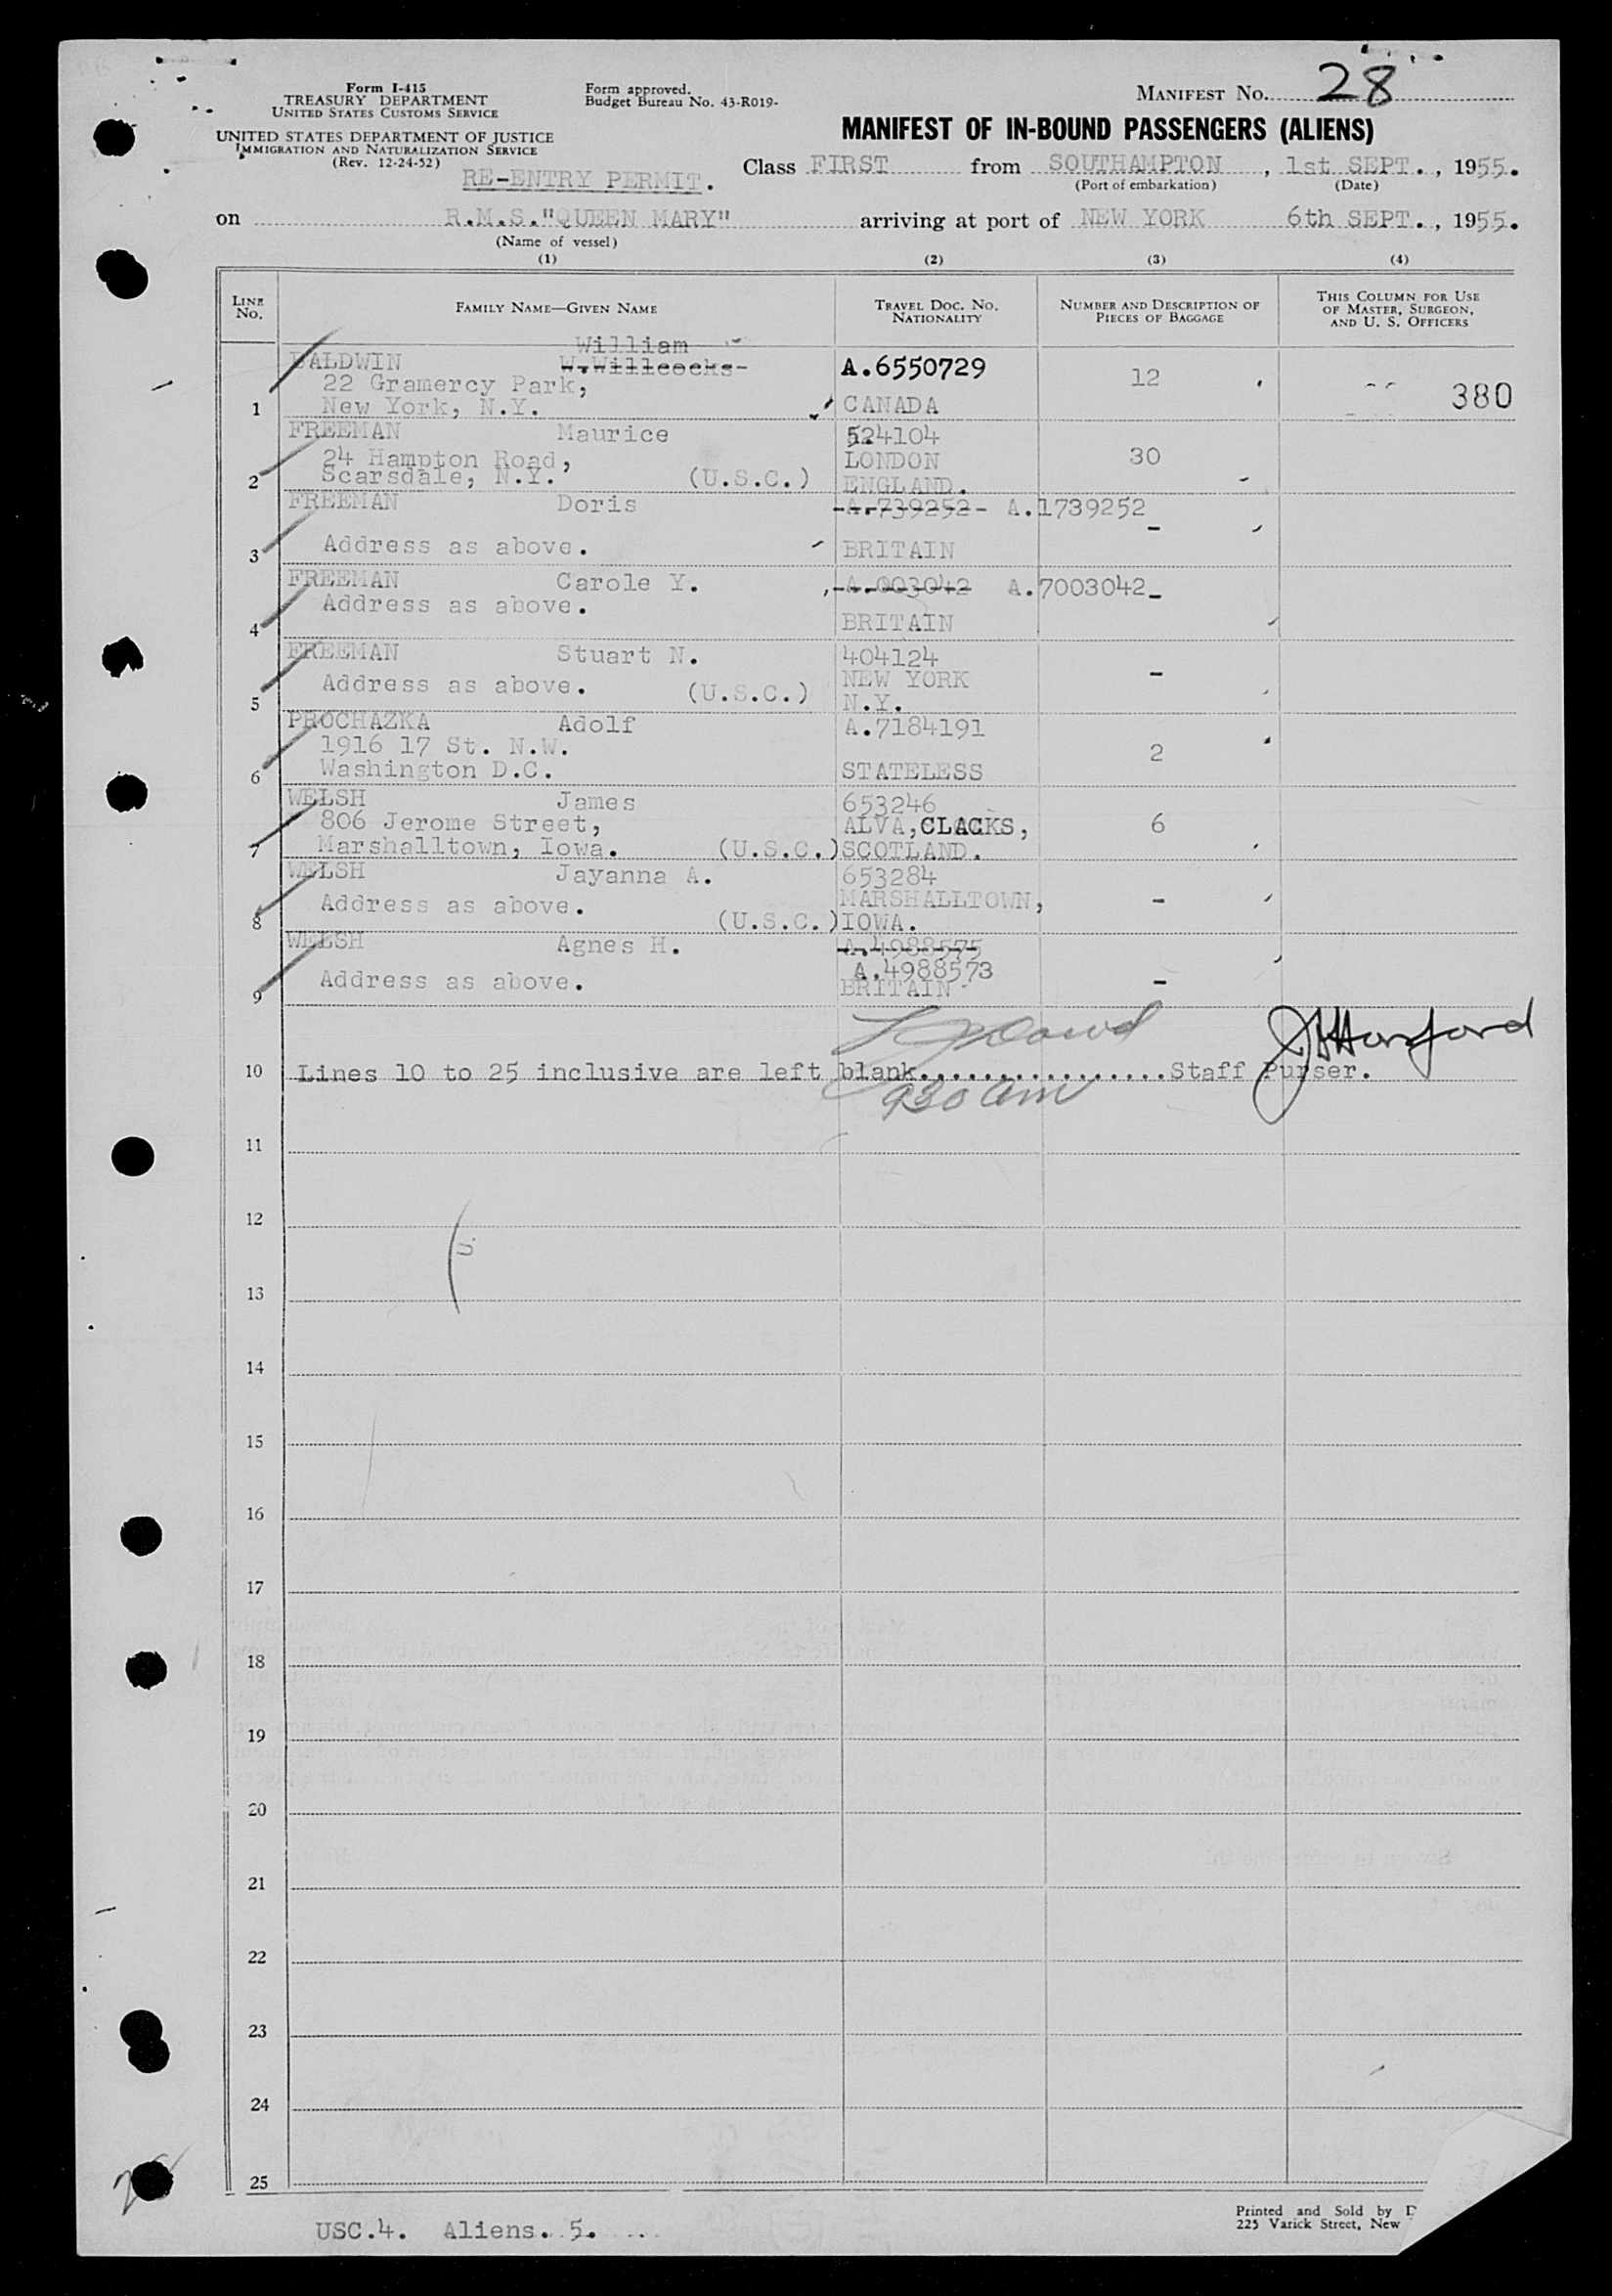 Form I-415
TREASURY DEPARTMENT
UNITED STATES CUSTOMS SERVICE
UNITED STATES DEPARTMENT OF JUSTICE
IMMIGRATION AND NATURALIZATION SERVICE
(Rev. 12-24-52)
Form approved.
Budget Bureau No. 43-R019-
MANIFEST NO. 28
MANIFEST OF IN-BOUND PASSENGERS (ALIENS)
RE-ENTRY PERMIT.
Class FIRST from SOUTHAMPTON, 1st SEPT., 1955.
(Port of embarkation) (Date)
on R.M.S."QUEEN MARY" arriving at port of NEW YORK 6th SEPT., 1955.
(Name of vessel)
(1) (2) (3) (4)
LINE NO.
FAMILY NAME—GIVEN NAME
TRAVEL DOC. NO. NATIONALITY
NUMBER AND DESCRIPTION OF PIECES OF BAGGAGE
THIS COLUMN FOR USE OF MASTER, SURGEON, AND U. S. OFFICERS
William
BALDWIN W.Willcocks- A.6550729
22 Gramercy Park, 12
1 New York, N.Y. CANADA 380
FREEMAN Maurice 524104
24 Hampton Road, LONDON 30
2 Scarsdale, N.Y. (U.S.C.) ENGLAND.
FREEMAN Doris -A.739252- A.1739252
-
3 Address as above. BRITAIN
FREEMAN Carole Y. -A.003042 A.7003042-
Address as above.
4 BRITAIN
FREEMAN Stuart N. 404124
Address as above. (U.S.C.) NEW YORK -
5 N.Y.
PROCHAZKA Adolf A.7184191
1916 17 St. N.W. 2
6 Washington D.C. STATELESS
WELSH James 653246
806 Jerome Street, ALVA,CLACKS, 6
7 Marshalltown, Iowa. (U.S.C.)SCOTLAND.
WELSH Jayanna A. 653284
Address as above. MARSHALLTOWN, -
8 (U.S.C.)IOWA.
WELSH Agnes H. A.4988575
A.4988573
9 Address as above. BRITAIN -
10 Lines 10 to 25 inclusive are left blank................Staff Purser.
930 am
11
12
13
14
15
16
17
18
19
20
21
22
23
24
25
USC.4. Aliens. 5.
Printed and Sold by
225 Varick Street, New